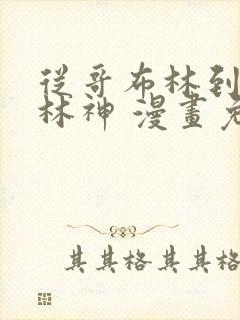 從哥布林到
林神 漫畫
其其格 其其格